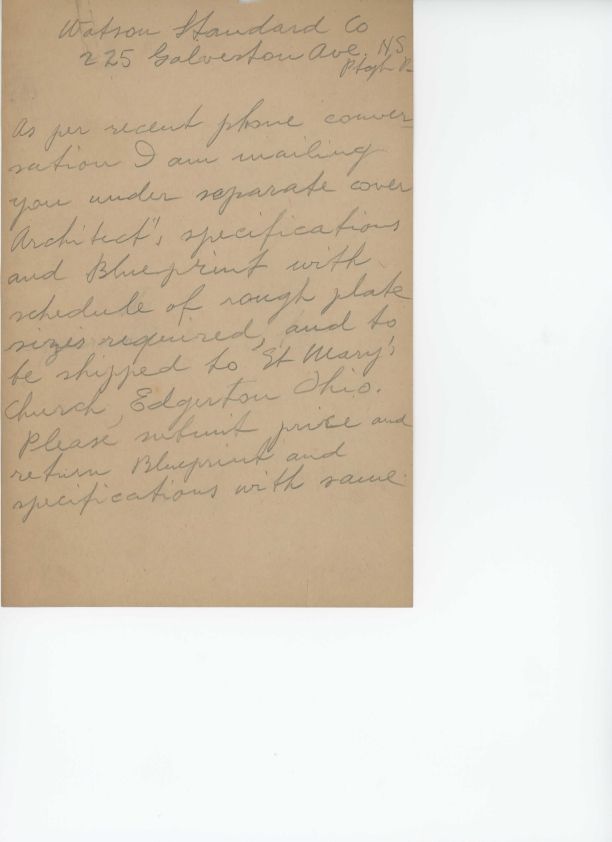 Watson Standard Co
225 Galveston Ave. N.S.
Ptgh P
As per recent phone conver-
sation I am mailing
you under separate cover
Architect's, specifications
and Blueprint with
schedule of rough plate
sizes required, and to
be shipped to St Mary's
Church, Edgerton Ohio.
Please submit price and
return Blueprint and
specifications with same.